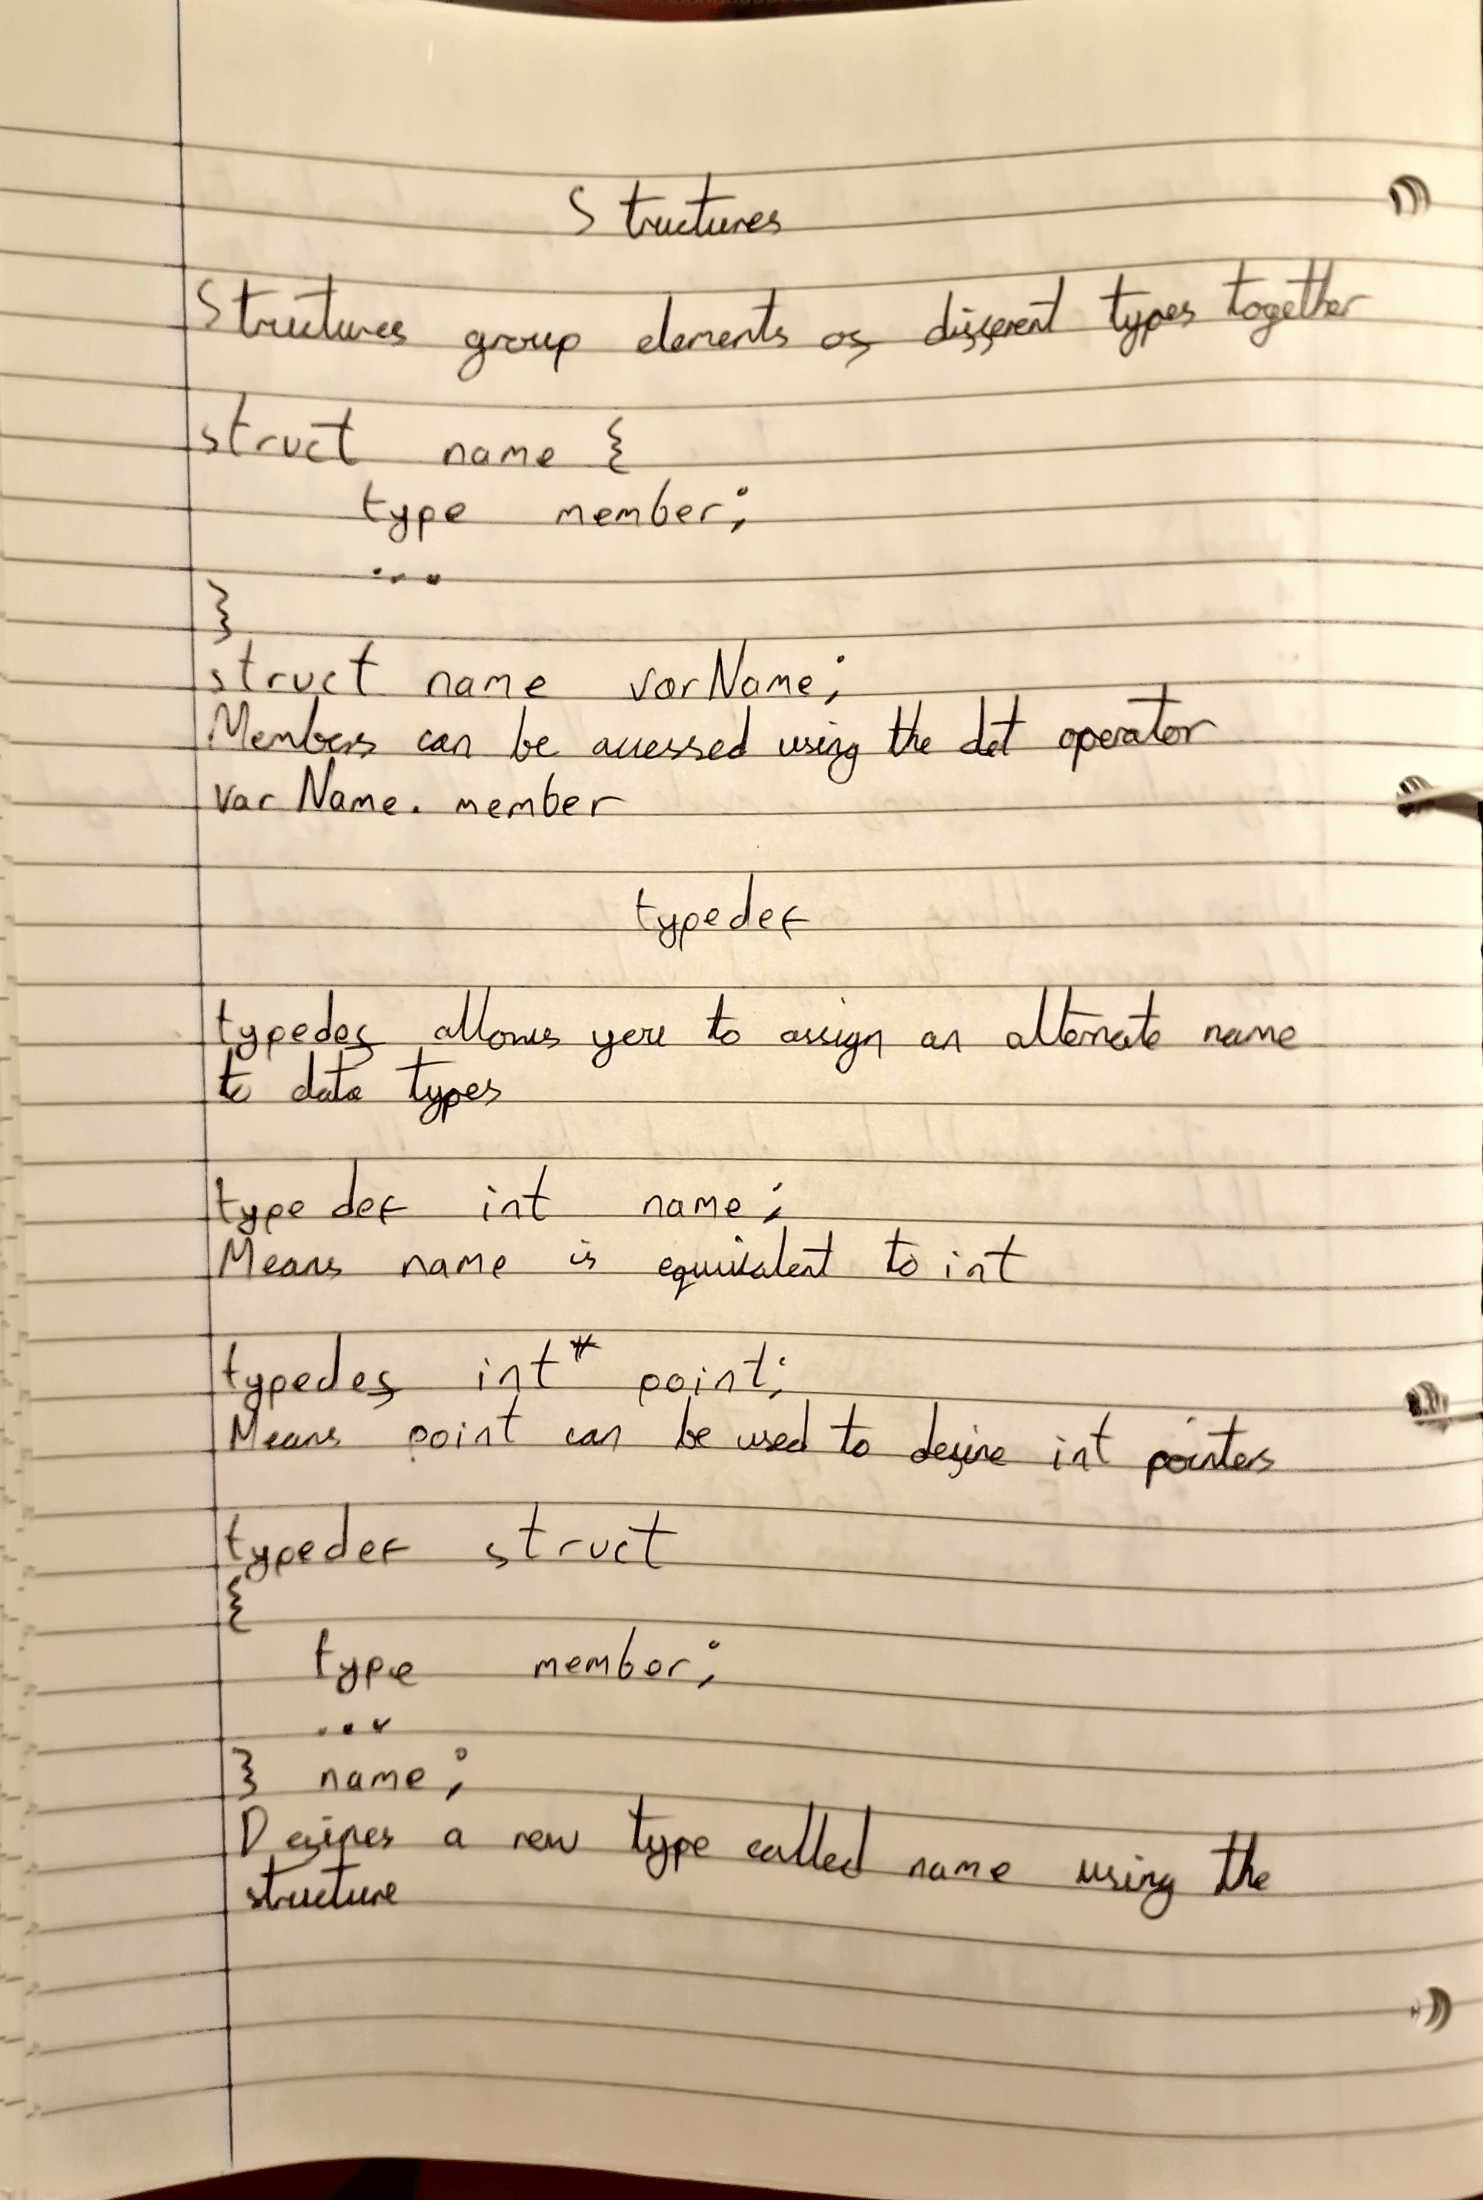 Structures
Structures group elements of different types together
struct name {
type member;
...
}
struct name varName;
Members can be accessed using the dot operator
varName.member
typedef
typedef allows you to assign an alternate name
to data types
typedef int name;
Means name is equivalent to int
typedef int* point;
Means point can be used to define int pointers
typedef struct
{
type member;
...
} name;
Defines a new type called name using the
structure